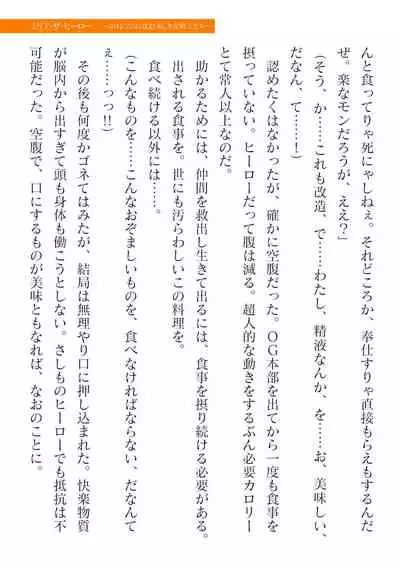 んと食ってりゃ死にゃしねぇ。それどころか、奉仕すりゃ直接もらえもするんだ
ぜ。楽なモンだろうが、ええ？」
（そう、か……これも改造、で……わたし、精液なんか、を……お、美味しい、
だなん、て……！）
認めたくはなかったが、確かに空腹だった。ＯＧ本部を出てから一度も食事を
摂っていない。ヒーローだって腹は減る。超人的な動きをするぶん必要カロリー
とて常人以上なのだ。
助かるためには、仲間を救出し生きて出るには、食事を摂り続ける必要がある。
出される食事を。世にも汚らわしいこの料理を。
食べ続ける以外には……。
（こんなものを……こんなおぞましいものを、食べなければならない、だなんて
ぇ……っっ‼）
その後も何度かゴネてはみたが、結局は無理やり口に押し込まれた。快楽物質
が脳内から出すぎて頭も身体も働こうとしない。さしものヒーローでも抵抗は不
可能だった。空腹で、口にするものが美味ともなれば、なおのことに。